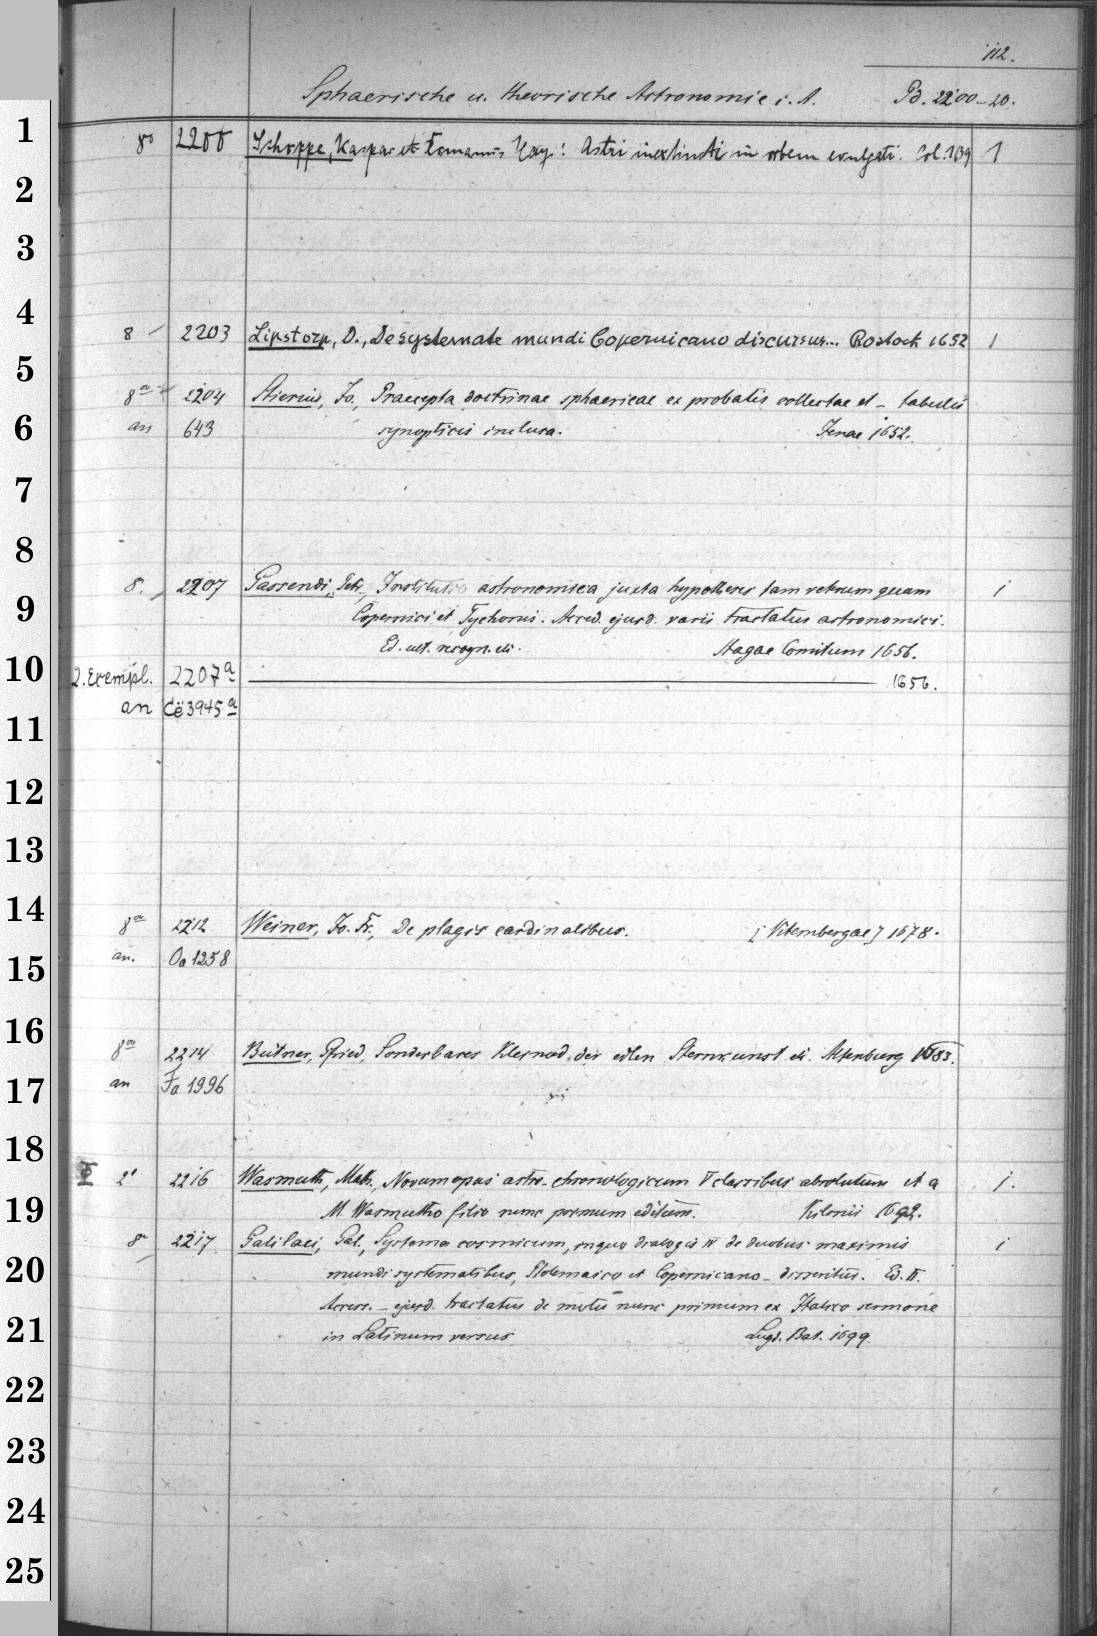 112.
Sphaerische u. theorische Astronomie i. A. Pd. 2200-20.
1 8o 2200 Schoppe, Kaspar et Romanus : Astri inextincti in orbem evulgati. Col. 1639 1
2
3
4
8 2203 Lipstorp, D., De systemate mundi Copernicano discursus... Rostock 1652 1
5
8vo 2204 Stierius, Jo., Praecepta doctrinae sphaericae ex probatis collectae et - tabulis
6 an 643 synopticis inclusa. Jenae 1652.
7
8
8. 2207 Gassendi, Petr., Institutio astronomica juxta hypotheses tam veterum quam 1
9 Copernici et Tychonis. Acced. ejusd. varii tractatus astronomici.
Ed. ult. recogn. etc. Hagae Comitum 1656.
10 2. Exempl. 2207a 1656.
an Cë 3945a
11
12
13
14 8vo 2212 Weiner, Jo. Fr., De plagis cardinalibus. [Vitembergae] 1678.
15 an. Oa 1258
16
8vo 2214 Beutner, Gfried, Sonderbares Kleinod der edlen Sternkunst etc. Altenburg 1683.
17 an Fa 1996
18
2° 2216 Wasmuth, Math., Novum opus astro-chronologicum V classibus absolutum et a 1.
19 M. Wasmutho filio nunc primum editum. Kilonii 1692.
8° 2217 Galilaei, Gal., Systema cosmicum, in quo dialogis IV de duobus maximis 1
20 mundi systematibus, Ptolemaico et Copernicano - disseritur. Ed. II.
Access. - ejusd. tractatus de motu nunc primum ex Italico sermone
21 in Latinum versus Lugd. Bat. 1699.
22
23
24
25